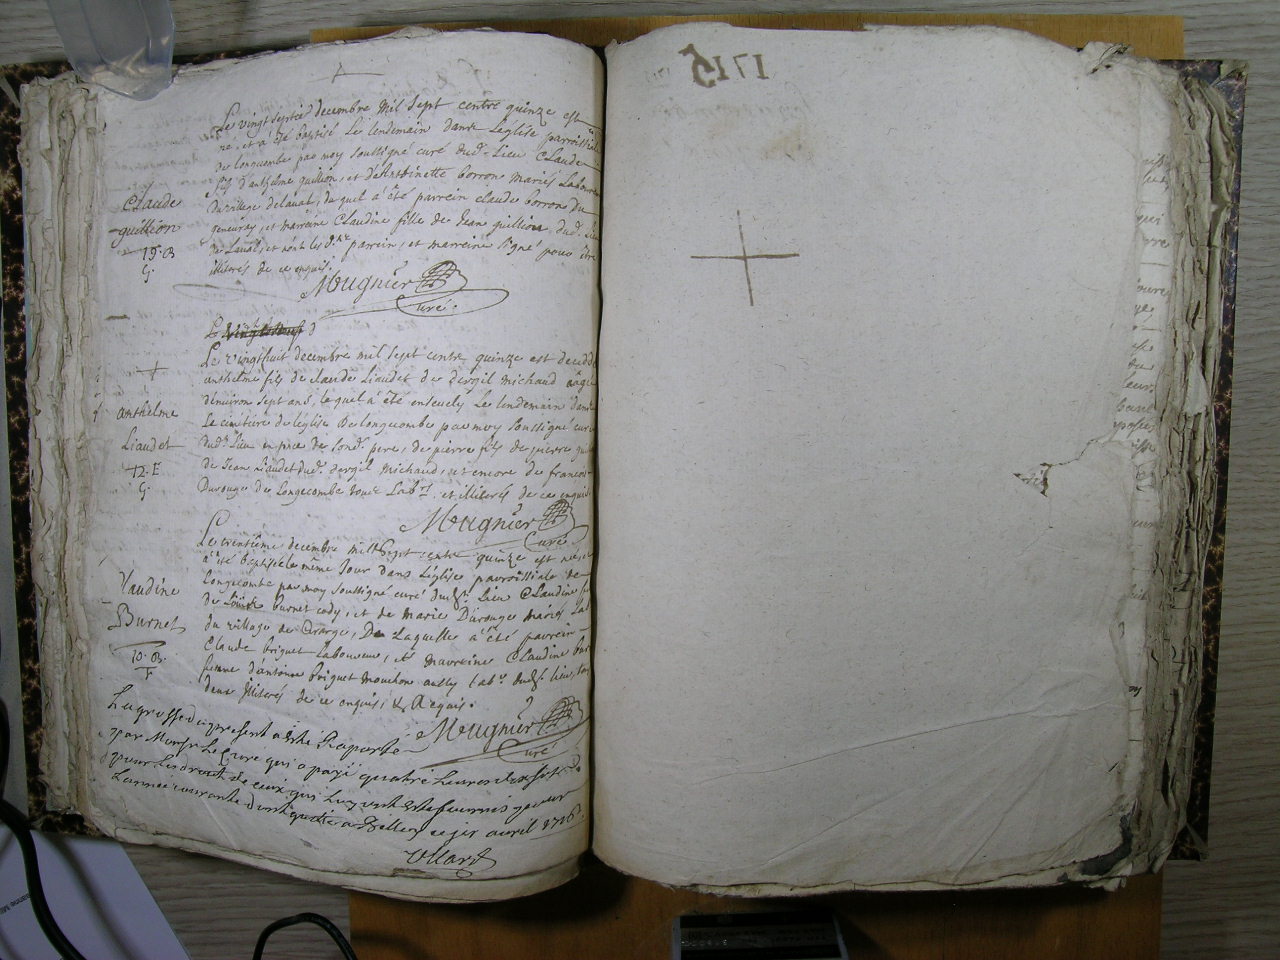 Le vingt septié decembre mil sept centz quinze est
né, et a été baptisé le lendemain dans l'église parroissiale
de longecombe par moy soussigné curé dud. lieu Claude
fils d'anthelme guillion, et d'Anthoinette borron mariés Laboureurs
du village de laval, du quel a été parrein claude borron du
geneuray, et marreine Claudine fille de Jean guillion dud. lieu
de Laval, et n'ont les d. parrein, et marreine signé pour être
illiterés de ce enquis.
Mugnier
Curé.
Claude
guillion
19. B
G.
Le vingt
Le vingthuit decembre mil sept centz quinze est decedé
anthelme fils de claude Liaudet de dergil michaud aagé
d'environ sept ans, le quel a été ensevely le lendemain dans
le cimitière de l'église de longecombe par moy soussigné curé
dud. lieu en pnce de sond. pere, de pierre fils de pierre
de Jean Liaudet dud. dergil michaud, et encore de francois
Durouge de Longecombe touts Lab.rs et illiterés de ce enquis
Mugnier
Curé
anthelme
Liaudet
12. E
G.
Le trentième decembre mil sept centz quinze est née et
a été baptisée le même Jour dans l'église parroissiale de
longecombe par moy soussigné curé dud. lieu Claudine
de Louis burnet cody, et de Marie Durouge mariés
du village de Ciranges, De Laquelle a été parrein
Claude briguet laboureur, et marreine Claudine
femme d'antoine briguet mouchon aussy lab.r dud. lieu,
deux illiterés de ce enquis, et Requis.
Mugnier
Curé
Claudine
Burnet
10. B.
F
La grosse du present a esté Raportée
par Monsr Le Curé qui a payé quatre Livres dix sols
pour Les droits de ceux qui Luy ont esté fournis pour
L'année courante dont quitte a Belley ce jer avril 1716.
Ullard
1715